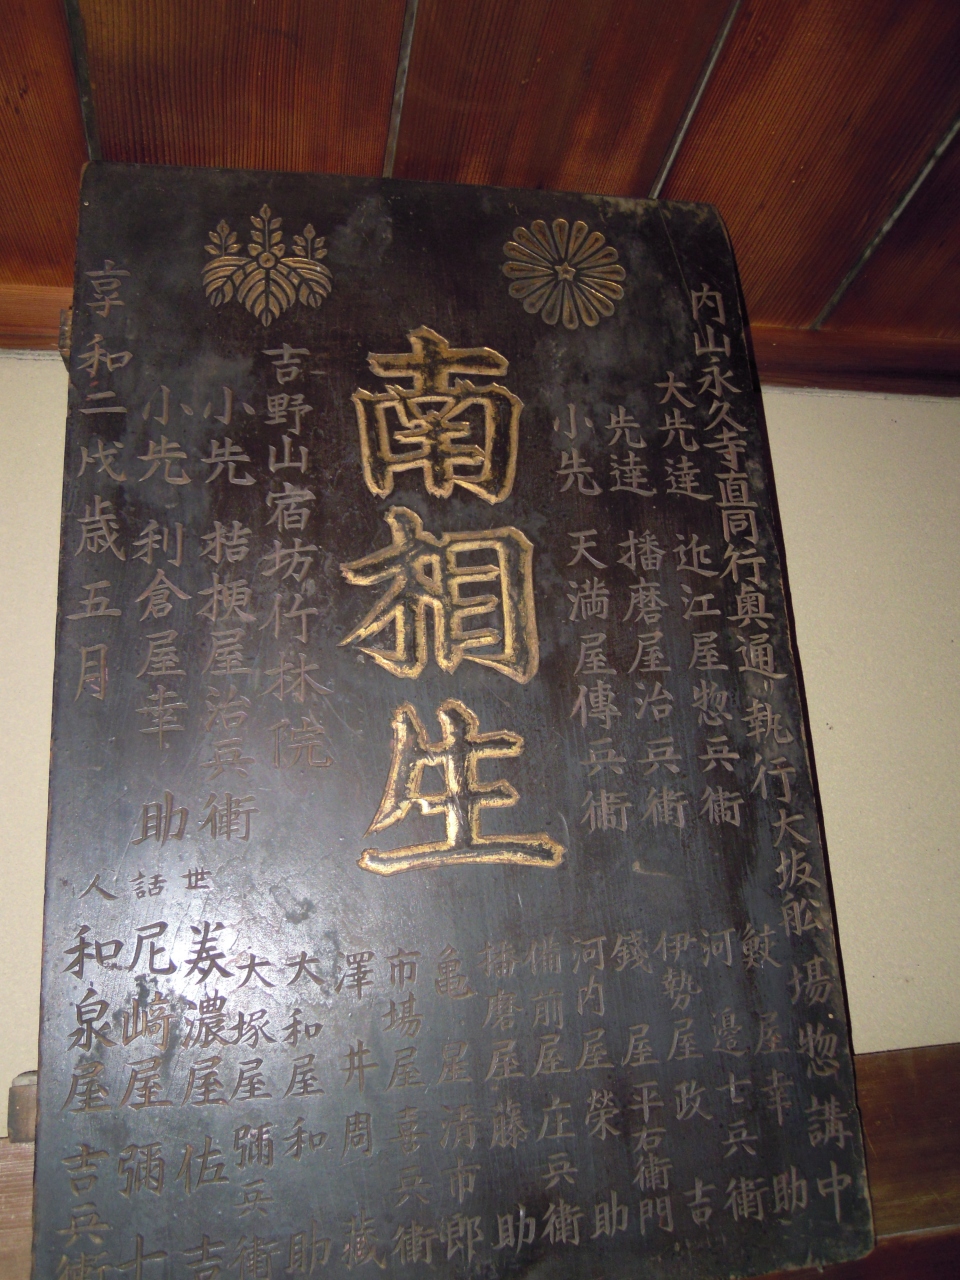 内山永久寺直同行奥通り執行大坂舩場惣講中
大先達 近江屋惣兵衛
先達 播磨屋治兵衛
小先 天満屋傳兵衛
南相生
吉野山宿坊竹林院
小先 桔梗屋治兵衛
小先 利倉屋幸助
享和二戌歳五月
鮫屋幸助
河邉七兵衛
伊勢屋政吉
錢屋平右衛門
河内屋榮助
備前屋庄兵衛
播磨屋藤助
亀屋清市郎
市場屋喜兵衛
澤井周蔵
大和屋和助
大塚屋彌兵衛
世話人
美濃屋佐吉
尼﨑屋彌七
和泉屋吉兵衛